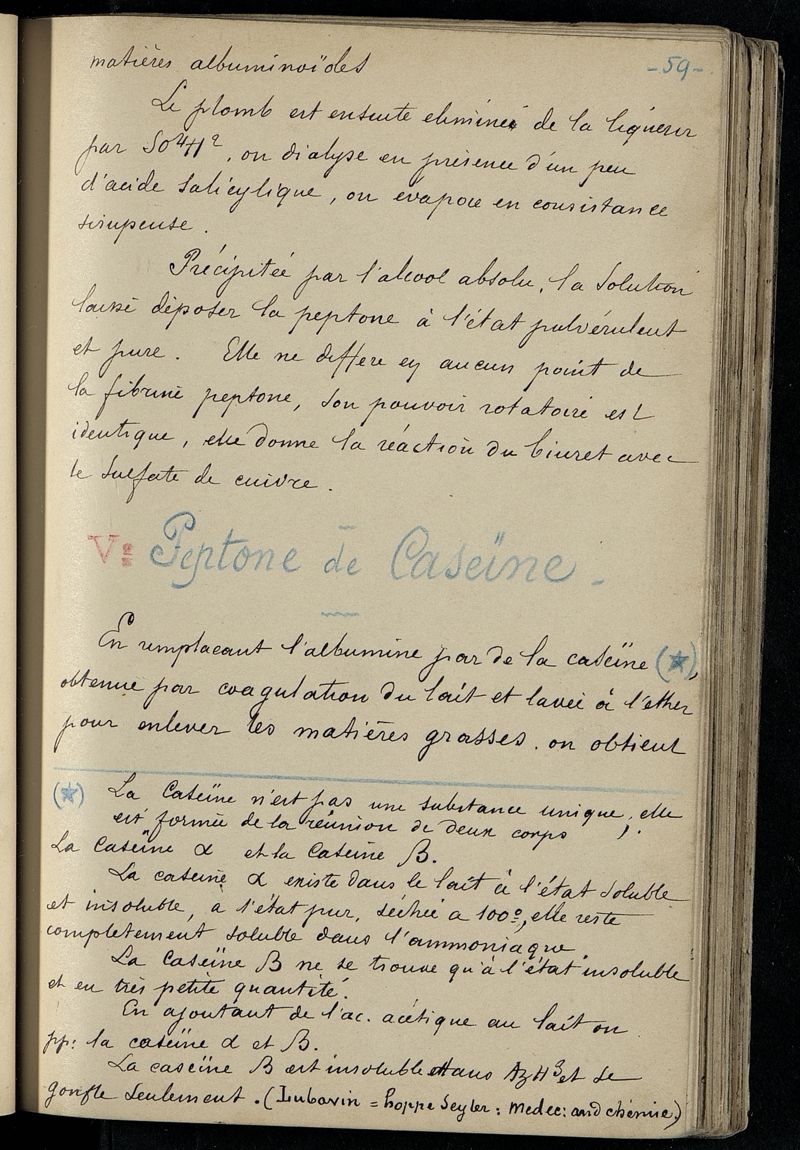 -59-
matières albuminoïdes
Le plomb est ensuite eliminé de la liqueur
par SO⁴H², on dialyse en présence d'un peu
d'acide salicylique, on evapore en consistance
sirupeuse.
Précipitée par l'alcool absolu, la solution
laisse déposer la peptone à l'état pulvérulent
et pure. Elle ne differe en aucun point de
la fibrine peptone, son pouvoir rotatoire est
identique, elle donne la réaction du biuret avec
le sulfate de cuivre.
Vº Peptone de Caseïne.
En remplacant l'albumine par de la caséïne (★),
obtenue par coagulation du lait et lavée à l'ether
pour enlever les matières grasses. on obtient
(★) La Caseïne n'est pas une substance unique, elle
est formée de la réunion de deux corps ;
La Caseïne α et la Caseïne B.
La caseïne α existe dans le lait à l'état soluble
et insoluble, a l'état pur, séchée a 100º, elle reste
completement soluble dans l'ammoniaque.
La Caseïne B ne se trouve qu'à l'état insoluble
et en très petite quantité.
En ajoutant de l'ac. acétique au lait on
pp: la caseïne α et B.
La caseïne B est insoluble dans AzH³ et se
gonfle seulement. (Lubavin = hoppe Seyler: medec: and chemie.)